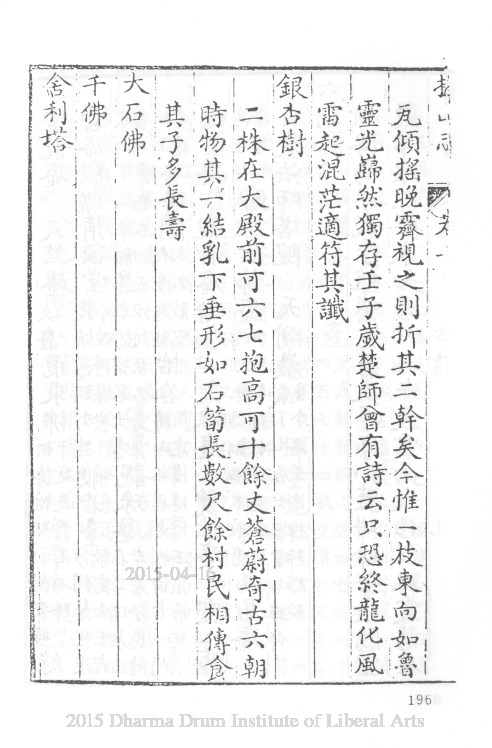 攝山志
卷一
瓦傾搖晚霽視之則折其二幹矣今惟一枝東向如魯
靈光巋然獨存壬子歲楚師曾有詩云只恐終龍化風
雷起混茫適符其讖
銀杏樹
二株在大殿前可六七抱高可十餘丈蒼蔚奇古六朝
時物其一結乳下垂形如石筍長數尺餘村民相傳食
其子多長壽
大石佛
千佛
舍利塔
2015-04-16
196
2015 Dharma Drum Institute of Liberal Arts